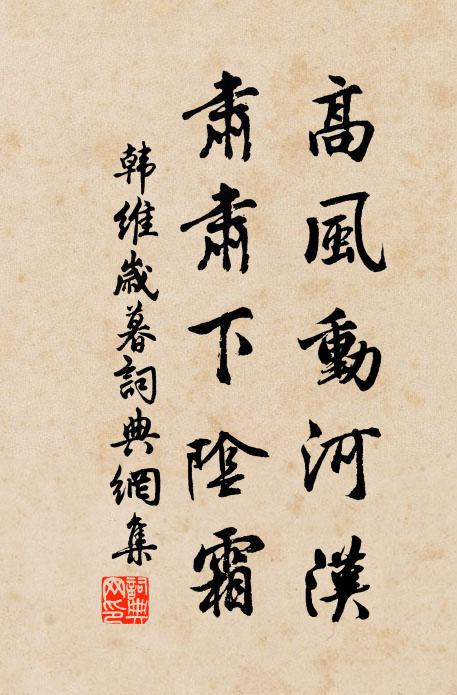 高風動河漢
肅肅下陰霜
韩維歲暮詞典網集
詞典網印